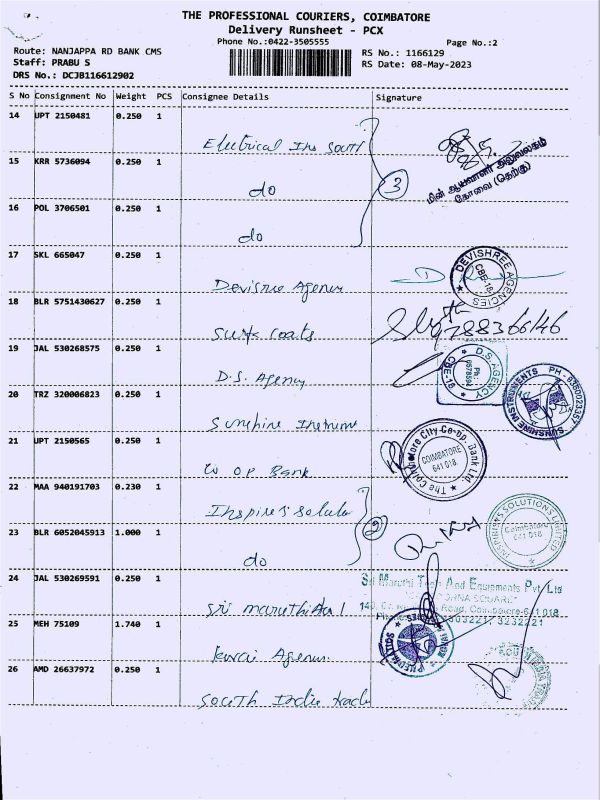 THE PROFESSIONAL COURIERS, COIMBATORE
Delivery Runsheet - PCX
Phone No.:0422-3505555
Page No.:2
Route: NANJAPPA RD BANK CMS
RS No.: 1166129
Staff: PRABU S
RS Date: 08-May-2023
DRS No.: DCJB116612902
S No Consignment No Weight PCS Consignee Details Signature
14 UPT 2150481 0.250 1
Electrical Ins South
மின் ஆய்வாளர் அலுவலகம்
கோவை (தெற்கு)
15 KRR 5736094 0.250 1
do
3
16 POL 3706501 0.250 1
do
17 SKL 665047 0.250 1
Devisree Agency
DEVISHREE AGENCIES
CBE-18
18 BLR 5751430627 0.250 1
Surfa Coats
9788366146
19 JAL 530268575 0.250 1
D.S. Agency
D.S. AGENCY
CBE-18
20 TRZ 320006823 0.250 1
Sunshine Instrume
SUNSHINE INSTRUMENTS PH -
21 UPT 2150565 0.250 1
Co op Bank
The Coimbatore City Co-op. Bank Ltd.
COIMBATORE
641 018.
22 MAA 940191703 0.230 1
Inspires solutio
2
23 BLR 6052045913 1.000 1
do
INSPIRISYS SOLUTIONS LIMITED
Coimbatore
641 018
24 JAL 530269591 0.250 1
Sri maruthi
Sri Maruthi Tech And Equipments Pvt Ltd
Road, Coimbatore-641 018
Phone 3232221
25 MEH 75109 1.740 1
Kovai Agenci
26 AMD 26637972 0.250 1
South India